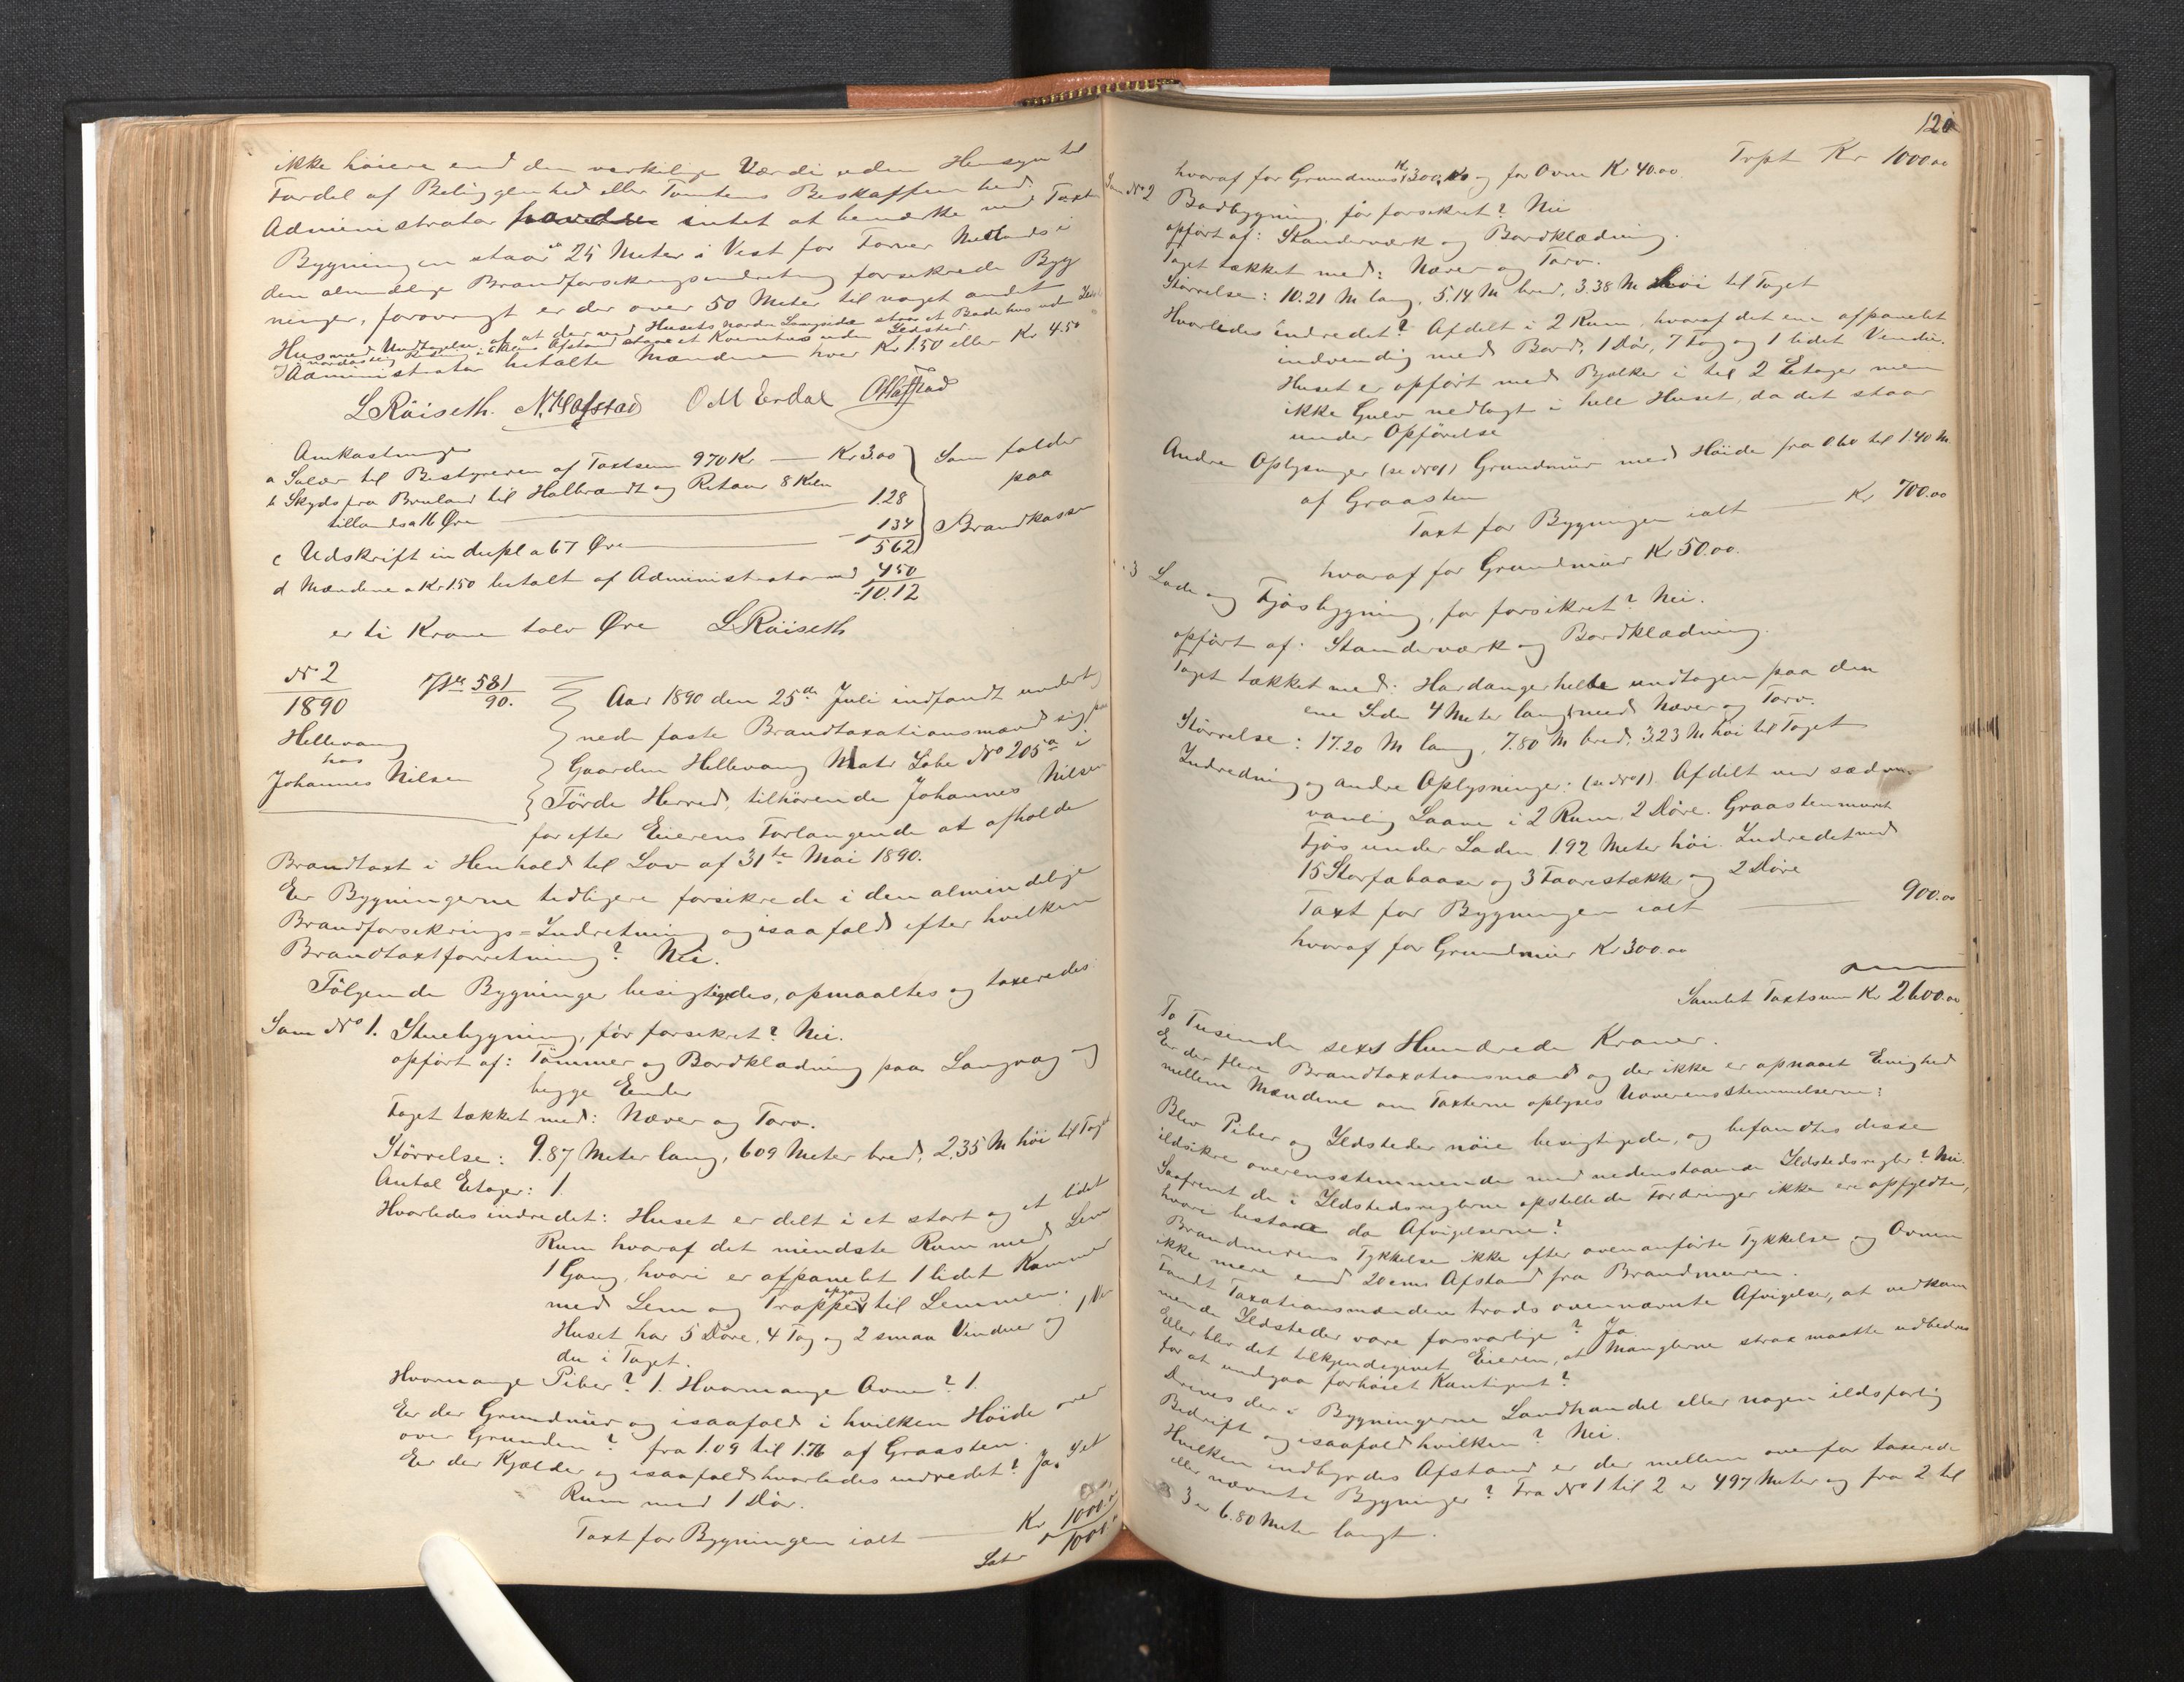 ikke høiere end den verkelige Værdi uden Hensyn til
Fordel af Beliggenhed eller Tomtens Beskaffenhed.
Administrator havde intet at bemerke ved Taxten
Bygningen staar 25 Meter i Vest for Forver Netlands i
den almindelige Brandforsikringsindretning forsikrede Byg
ninger, forøvrigt er der over 50 Meter til noget andet
Hus med Undtagelse af at der ved Husets nordre Langside staar et Badehus uden Ildsted
i nordøstlig Retning i Afstand staar et Kornhus uden Ildsted.
Administrator betalte Mændene hver Kr 1.50 eller Kr 4.50
L Röiseth. N. Hafstad O M Erdal O Hafstad
Omkostninger
a Salær til Bestyreren af Taxtsum 970 Kr — Kr 3.00
b Skyds fra Bruland til Halbrændt og Retour 8 Kilm
tillands a 16 Øre — 1.28
c Udskrift in dupl a 67 Øre — 134
562
d Mændene a Kr 1.50 betalt af Administrator med 450
10.12
Som falder
paa
Brandkassen
er ti Kroner tolv Øre L Röiseth
No 2
1890
Hellevang
hos
Johannes Nilsen
581
90.
Aar 1890 den 25de Juli indfandt underteg
nede faste Brandtaxationsmænd sig paa
Gaarden Hellevang Matr Løbe No 205a i
Förde Herred, tilhörende Johannes Nilsen
for efter Eierens Forlangende at afholde
Brandtaxt i Henhold til Lov af 31te Mai 1890.
Er Bygningerne tidligere forsikrede i den almindelige
Brandforsikrings=Indretning og isaafald efter hvilken
Brandtaxtforretning? Nei.
Følgende Bygninger besigtigedes, opmaaltes og taxeredes:
Som No 1. Stuebygning, før forsikret? Nei.
opført af: Tømmer og Bordklædning paa Langvæg og
begge Ender
Taget tækket med: Næver og Torv.
Størrelse: 9.87 Meter lang, 6.09 Meter bred, 2.35 M høi til Taget
Antal Etager: 1.
Hvorledes indredet: Huset er delt i et stort og et lidet
Rum hvoraf det mindste Rum med Lem
1 Gang, hvori er afpanelet 1 lidet Kammer
med Lem og Trappeopgang til Lemmen.
Huset har 5 Døre, 4 Fag og 2 smaa Vinduer og 1 Vin
du i Taget.
Hvormange Piber? 1. Hvormange Ovne? 1.
Er der Grundmur og isaafald i hvilken Høide over
over Grunden? fra 1.09 til 1.76 af Graasten.
Er der Kjælder og isaafald hvorledes indredet? Ja, 1 et
Rum med 1 Dør.
Taxt for Bygningen ialt — Kr 1000.00
Latr 1000.
120
Trpt Kr 1000.00
hvoraf for Grundmur Kr 300.00 og for Ovne Kr 40.00
Som No 2 Bodbygning, før forsikret? Nei
opført af: Standerværk og Bordklædning.
Taget tækket med: Næver og Torv.
Størrelse: 10.21 M lang, 5.14 M bred, 3.38 M høi til Taget
Hvorledes indredet? Afdelt i 2 Rum, hvoraf det ene afpanelet
indvendig med Bord, 1 Dør, 7 Fag og 1 lidet Vindu.
Huset er opført med Bjelker i til 2 Etager men
ikke Gulv nedlagt i hele Huset, da det staar
under Opførelse
Andre Oplysninger (se No 1) Grundmur med Høide fra 0.60 til 1.40 M
af Graasten
Taxt for Bygningen ialt — Kr 700.00
hvoraf for Grundmur Kr 50.00.
3 Lade og Fjøsbygning, før forsikret? Nei.
opført af: Standerværk og Bordklædning.
Taget tækket med: Hardangerhelle undtagen paa den
ene Side 4 Meter langt med Næver og Torv.
Størrelse: 17.20 M lang, 7.80 M bred, 3.23 M høi til Taget
Indredning og andre Oplysninger: (se No 1) Afdelt ved sædvan
vanlig Laave i 2 Rum. 2 Døre. Graastenmuret
Fjøs under Laden 1.92 Meter høi. Indredet med
15 Storfæbaase og 3 Faarestække og 2 Døre
Taxt for Bygningen ialt — 900.00
hvoraf for Grundmur Kr 300.00
Samlet Taxtsum Kr 2600.00
To Tusende sexs Hundrede Kroner.
Er der flere Brandtaxationsmænd og der ikke er opnaaet Enighed
mellem Mændene om Taxterne oplyses Uoverensstemmelserne:
Blev Piber og Ildsteder nøie besigtigede, og befandtes disse
ildsikre overensstemmende med nedenstaaende Ildstedsregler? Nei.
Saafremt de i Ildstedsreglerne opstillede Fordringer ikke ere opfyldte,
hvori bestaar da Afvigelserne?
Brandmurens Tykkelse ikke efter ovenanførte Tykkelse og Ovnen
ikke mere end 20 cms Afstand fra Brandmuren.
Fandt Taxationsmændene trods ovennævnte Afvigelser, at vedkom
mende Ildsteder vare forsvarlige? Ja.
Eller blev det tilkjendegivet Eieren, at Manglerne strax maatte udbedres
for at undgaa forhøiet Kontigent?
Drives der i Bygningerne Landhandel eller nogen ildsfarlig
Bedrift og isaafald hvilken? Nei.
Hvilken indbyrdes Afstand er der mellem ovenfor taxerede
eller nævnte Bygninger? Fra No 1 til 2 er 4.97 Meter og fra 2 til
3 er 6.80 Meter langt.